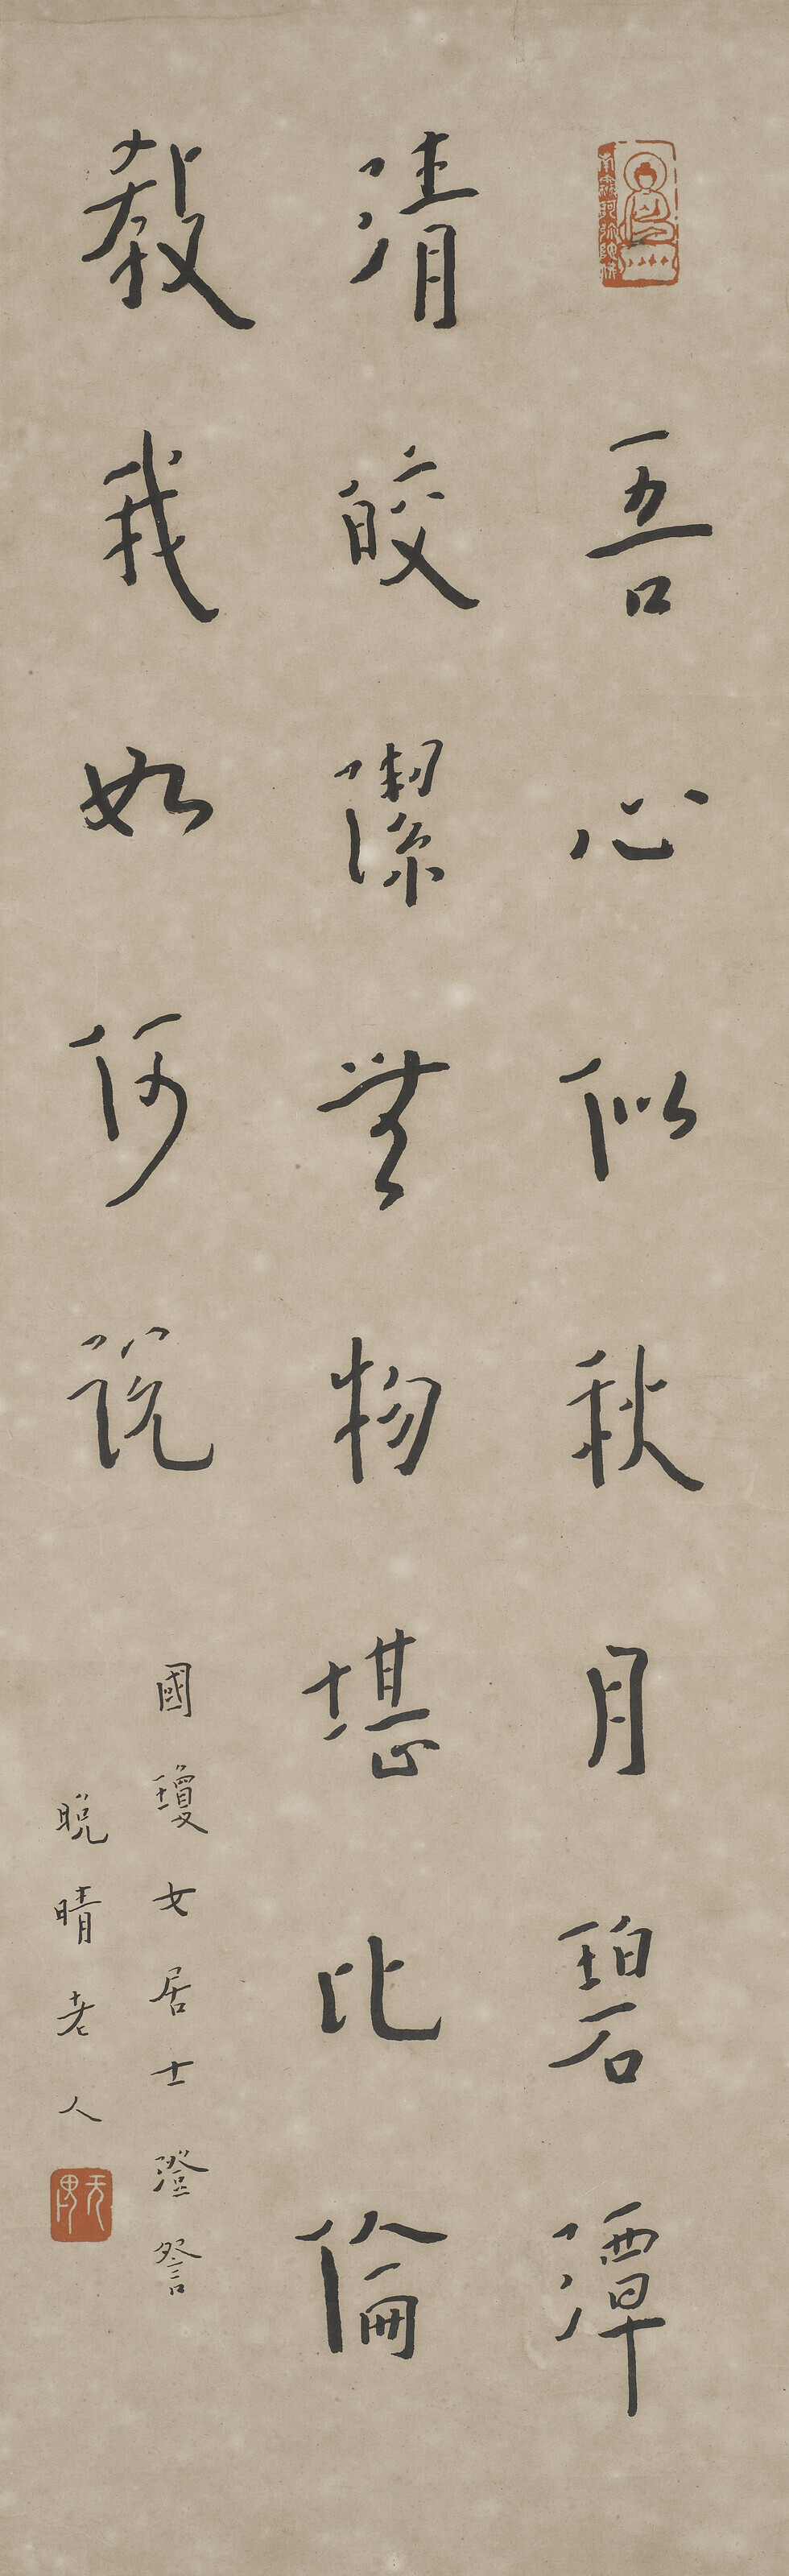 南無阿彌陀佛
吾心似秋月碧潭
清皎潔無物堪比倫
教我如何說
國瓊女居士澄詧
晚晴老人